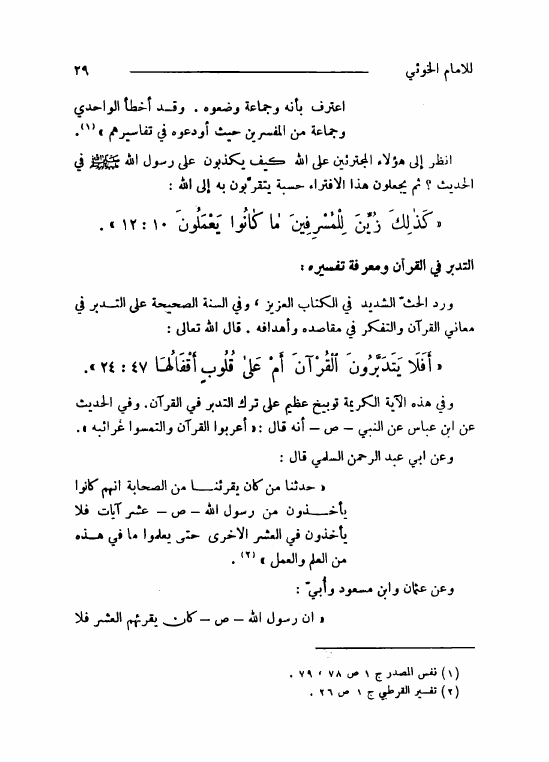 للامام الخوئي ٢٩
اعترف بأنه وجماعة وضعوه . وقد أخطأ الواحدي
وجماعة من المفسرين حيث أودعوه في تفاسيرهم » (١).
انظر إلى هؤلاء المجترئين على الله كيف يكذبون على رسول الله ﷺ في
الحديث ؟ ثم يجعلون هذا الافتراء حسبة يتقرّبون به إلى الله :
« كَذٰلِكَ زُيِّنَ لِلْمُسْرِفِينَ مٰا كٰانُوا يَعْمَلُونَ ١٠ : ١٢ » .
التدبر في القرآن ومعرفة تفسيره :
ورد الحثّ الشديد في الكتاب العزيز ، وفي السنة الصحيحة على التــدبر في
معاني القرآن والتفكر في مقاصده وأهدافه . قال الله تعالى :
« أَفَلَا يَتَدَبَّرُونَ الْقُرْآنَ أَمْ عَلىٰ قُلُوبٍ أَقْفَالُهٰا ٤٧ : ٢٤ ».
وفي هذه الآية الكريمة توبيخ عظيم على ترك التدبر في القرآن. وفي الحديث
عن ابن عباس عن النبي – ص – أنه قال :« أعربوا القرآن والتمسوا غرائبه ».
وعن ابي عبد الرحمن السلمي قال :
« حدثنا من كان يقرئنــا من الصحابة انهم كانوا
يأخــذون من رسول الله – ص – عشر آيات فلا
يأخذون في العشر الاخرى حتى يعلموا ما في هــذه
من العلم والعمل » (٢) .
وعن عثمان وابن مسعود وأُبيّ :
« ان رسول الله – ص – كان يقرئهم العشر فلا
(١) نفس المصدر ج ١ ص ٧٨ ، ٧٩ .
(٢) تفسير القرطبي ج ١ ص ٢٦ .